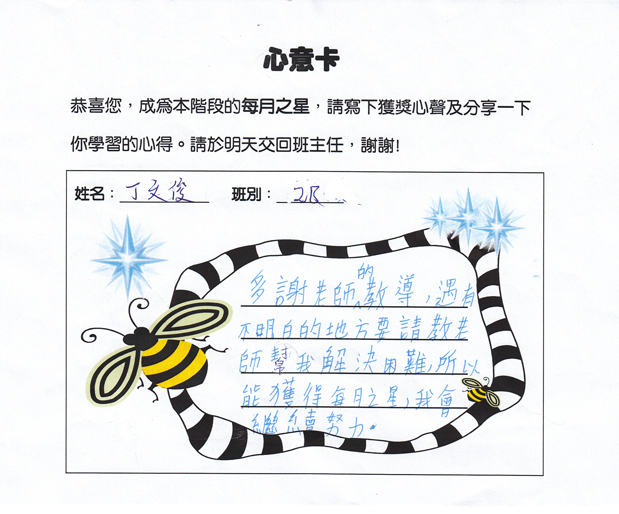 心意卡
恭喜您，成為本階段的每月之星，請寫下獲獎心聲及分享一下
你學習的心得。請於明天交回班主任，謝謝!
姓名：丁文俊 班別：2B
多謝老師的教導，遇有
不明白的地方要請教老
師幫我解決困難，所以
能獲得每月之星，我會
繼續努力。